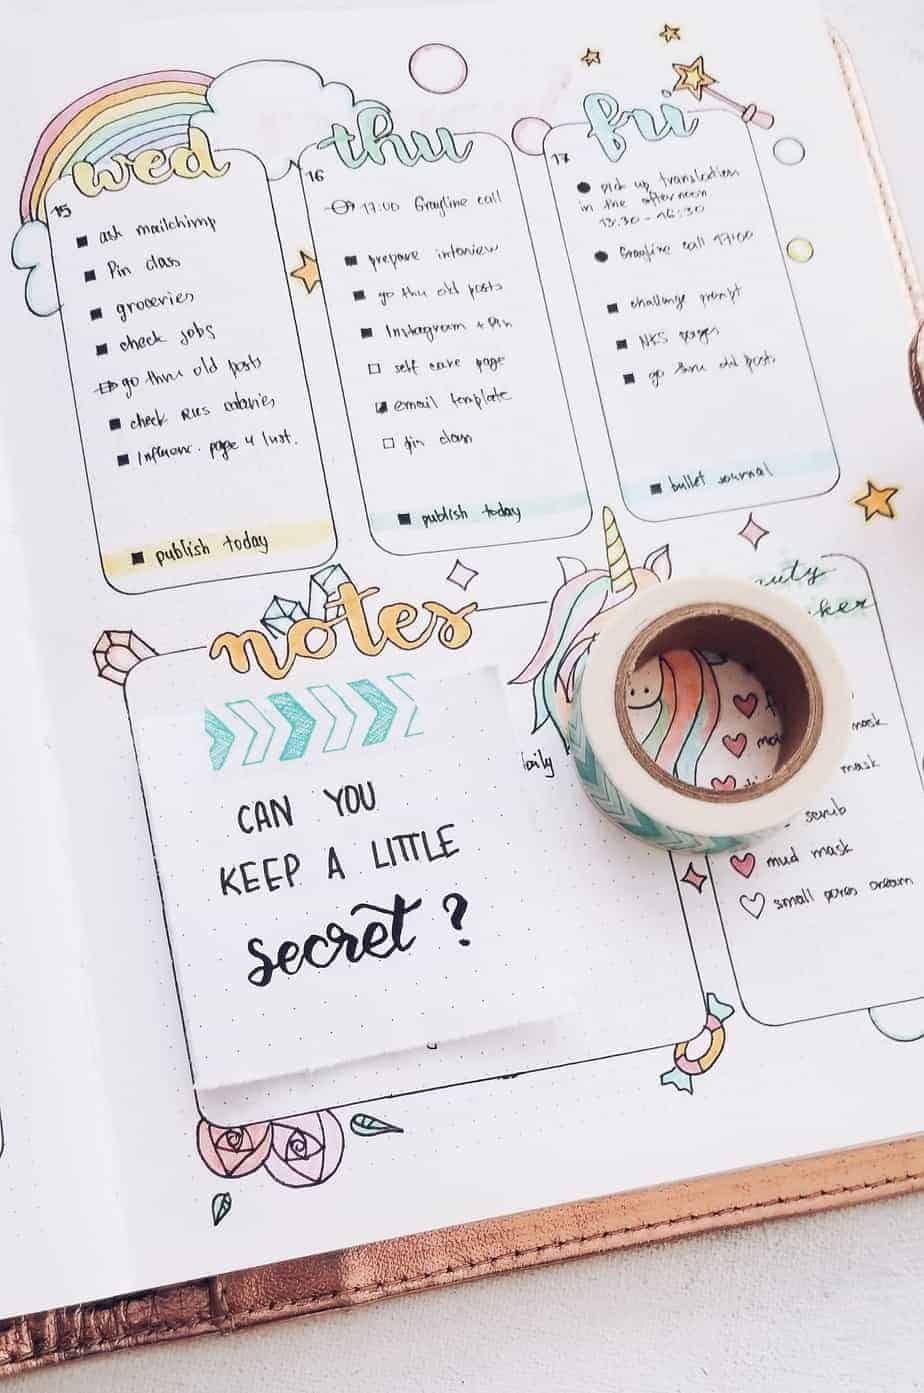 wed
15
ask mailchimp
Pin class
groceries
check jobs
go thru old posts
check RUS
Influenc. page 4 Inst.
publish today
thu
16
17:00 Grayline call
prepare interview
go thu old posts
Instagram + Pin
self care page
email template
pin class
publish today
fri
17
pick up translation
in the afternoon
13:30 - 16:30
Grayline call 17:00
challenge prompt
NKS pages
go thru old posts
bullet journal
notes
CAN YOU
KEEP A LITTLE
secret?
daily
mask
mask
scrub
mud mask
small pores cream